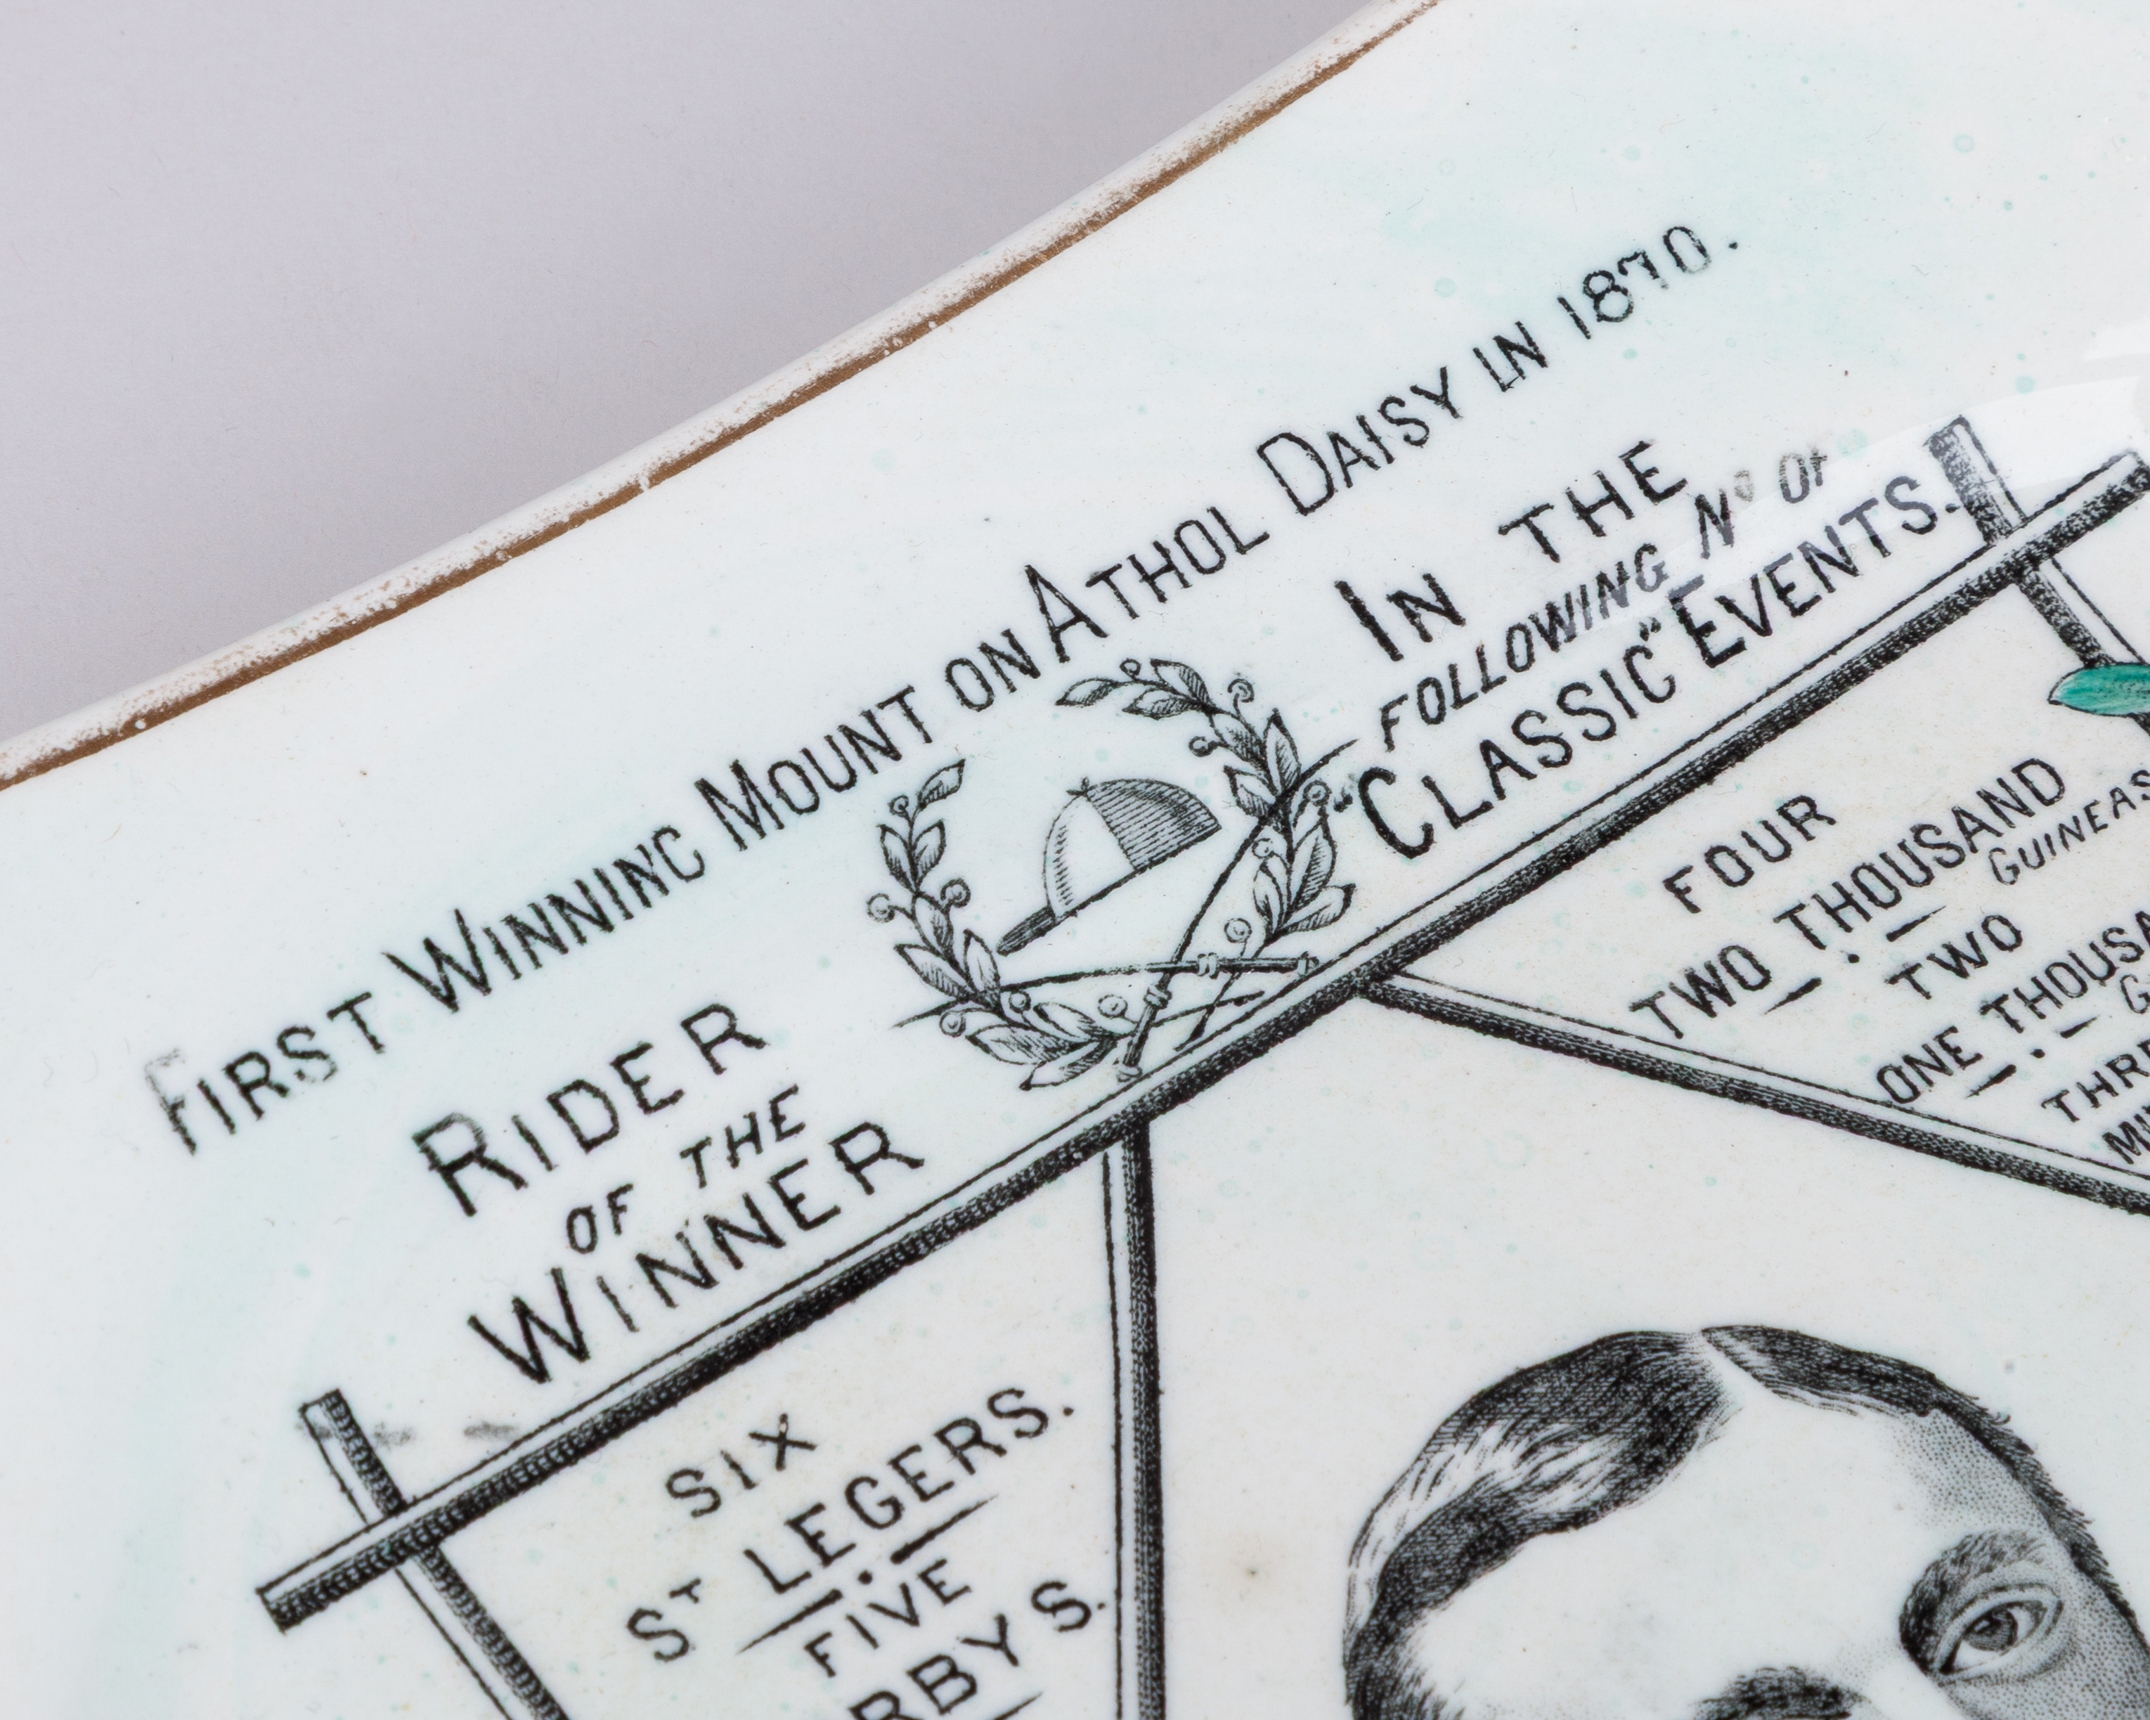 FIRST WINNING MOUNT ON ATHOL DAISY IN 1870.
RIDER
OF THE
WINNER
IN THE
FOLLOWING Nº OF
"CLASSIC" EVENTS.
SIX
ST LEGERS.
FIVE
FOUR
TWO THOUSAND
GUINEAS
TWO
ONE